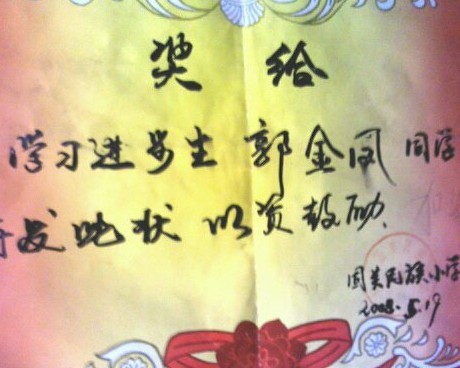 奖给
学习进步生 郭金凤 同学
特发此状 以资鼓励。
民族小学
2008.5.19